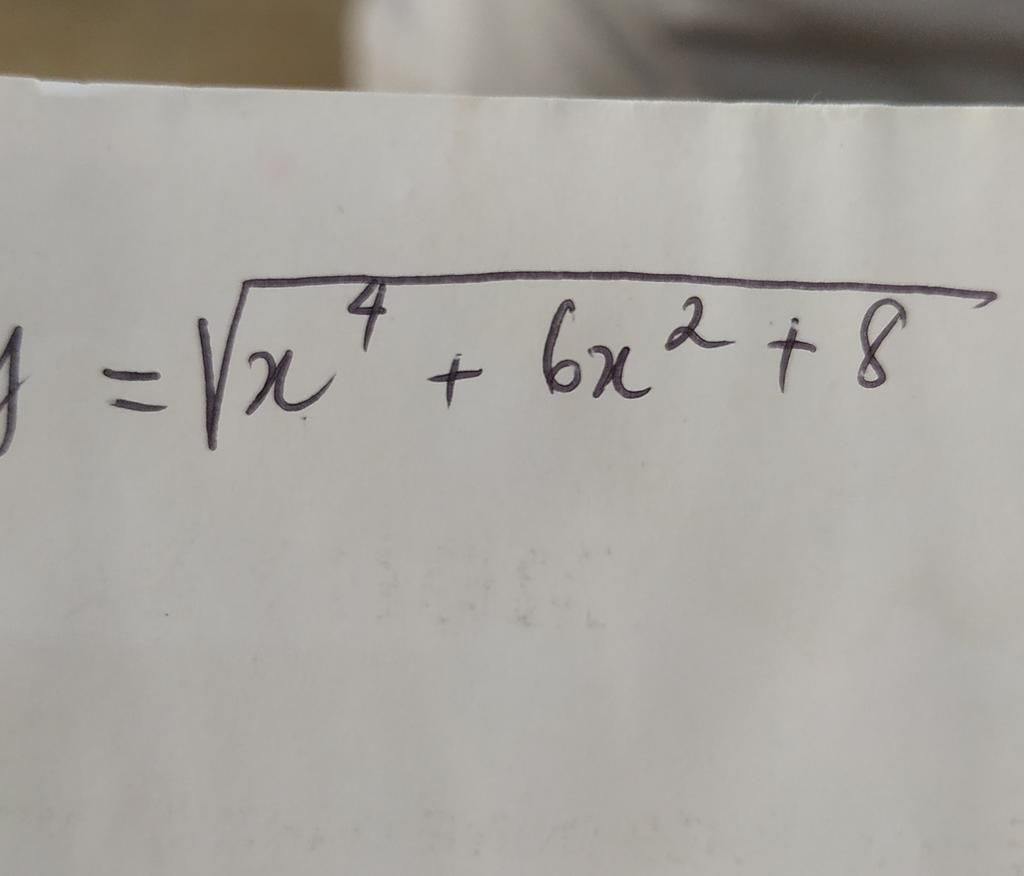 y = √x⁴ + 6x² + 8